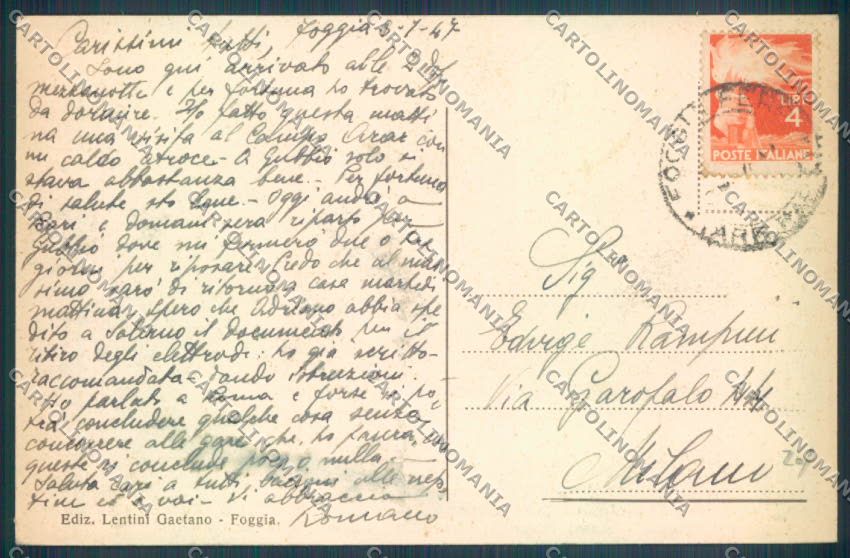 Foggia 3-7-47
Carissimi tutti,
Sono qui arrivato alle 2 di
mezzanotte e per fortuna ho trovato
da dormire. Ho fatto questa matti
na una visita al Campo con
un caldo atroce - A Gubbio solo si
stava abbastanza bene - Per fortuna
di salute sto bene - Oggi andrò a
Bari e domani sera riparto per
Gubbio dove mi fermerò due o tre
giorni per riposare. Credo che al mas
simo sarò di ritorno a casa martedì
mattina. Spero che Adriano abbia spe
dito a Salerno il documento per il
ritiro degli elettrodi: ho già scritto
raccomandata dando istruzioni.
Ho parlato a Roma e forse si po
trà concludere qualche cosa senza
concorrere alle gare che ho paura
queste si conclude poco o nulla.
Saluti cari a tutti, bacioni alle nep
tine e a voi - Vi abbraccio
Romano
Ediz. Lentini Gaetano - Foggia.
LIRE
4
POSTE ITALIANE
Sigra
Edvige
Via Garofalo 44
Milano
CARTOLINOMANIA